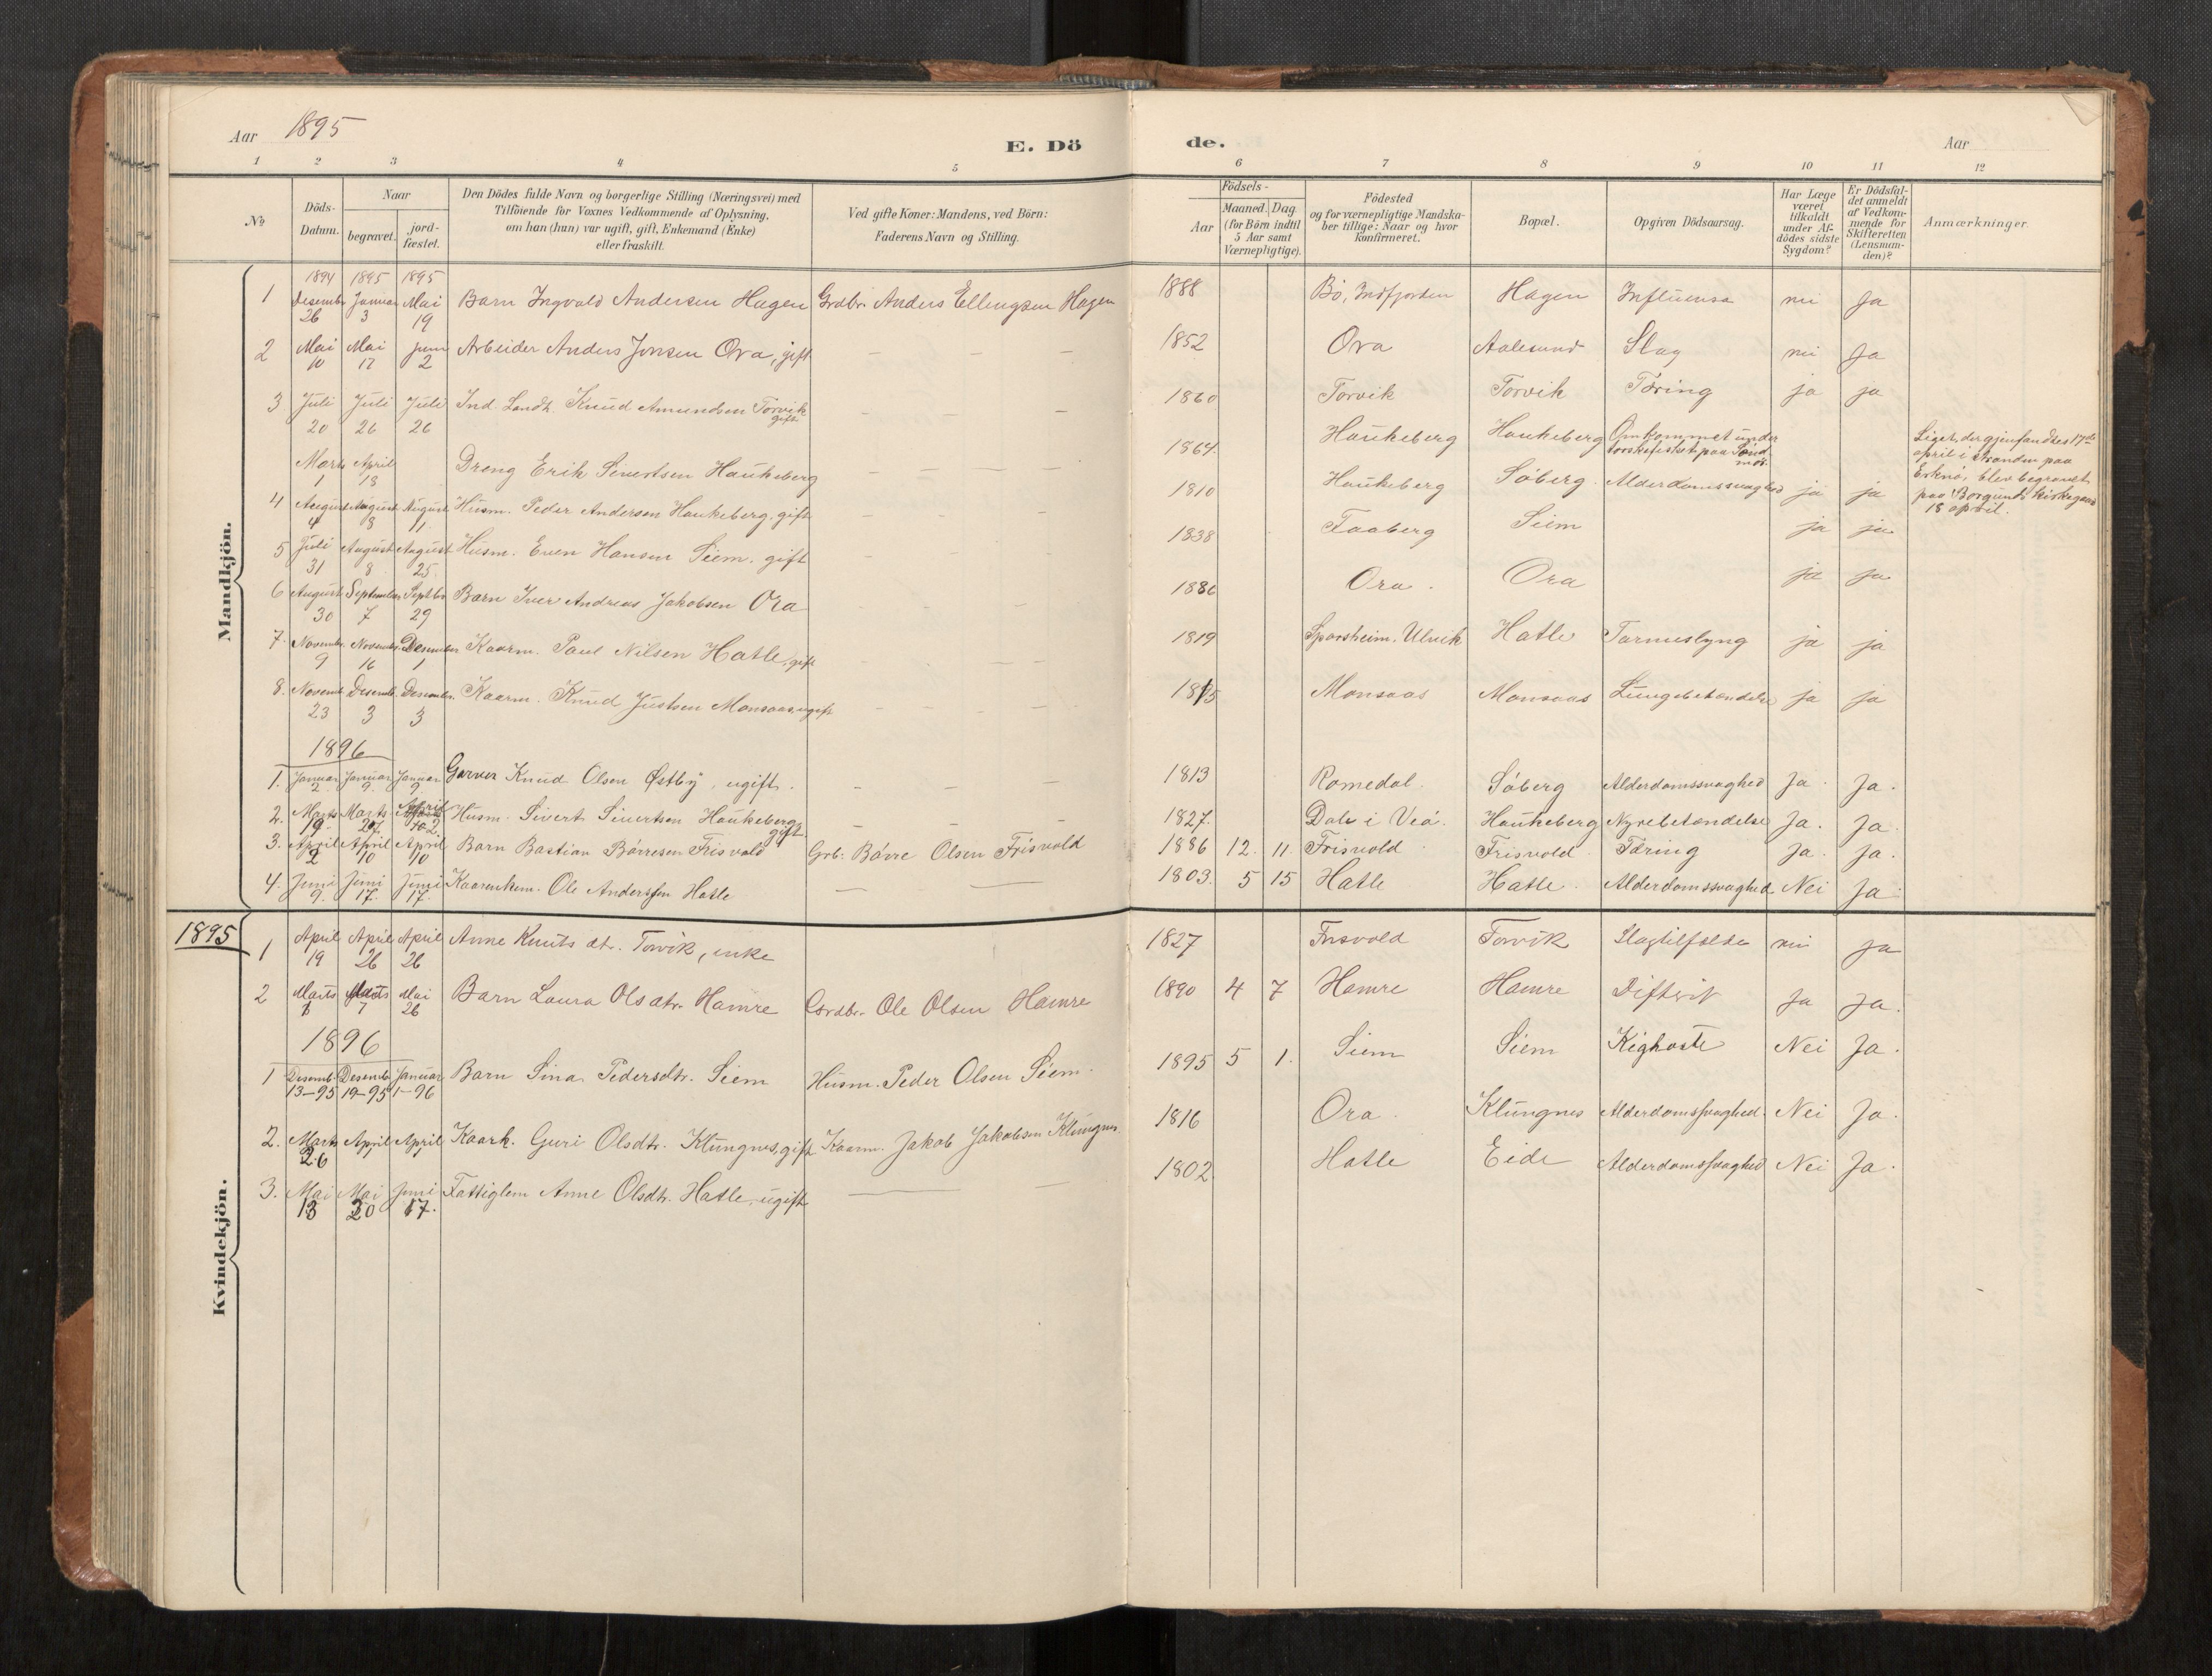 Aar 1895
E. Dö
de.
Aar
1 2 3 4 5 6 7 8 9 10 11 12
No
Döds-Datum.
Naar
begravet.
jord-fæstet.
Den Dödes fulde Navn og borgerlige Stilling (Næringsvei) med
Tilföiende for Voxnes Vedkommende af Oplysning,
om han (hun) var ugift, gift, Enkemand (Enke)
eller fraskilt.
Ved gifte Koner: Mandens, ved Börn:
Faderens Navn og Stilling.
Födsels-
Aar
Maaned. Dag
(for Börn indtil
5 Aar samt
Værnepligtige).
Födested
og for værnepligtige Mandska-
ber tillige: Naar og hvor
konfirmeret.
Bopæl.
Opgiven Dödsaarsag.
Har Læge
været
tilkaldt
under Af-
dödes sidste
Sygdom?
Er Dödsfal-
det anmeldt
af Vedkom-
mende for
Skifteretten
(Lensman-
den)?
Anmærkninger.
Mandkjön.
1894 1895 1895
1 Desembr 26 Januar 3 Mai 19 Barn Ingvald Andersen Hagen Grdbr. Anders Ellingsen Hagen 1888 Bö, Indfjorden Hagen Influensa nei Ja
2 Mai 10 Mai 17 Juni 2 Arbeider Anders Jonsen Ora, gift – – – 1852 Ora Aalesund Slag nei Ja
3 Juli 20 Juli 26 Juli 26 Ind. Landh. Knud Amundsen Torvik gift – – – 1860 Torvik Torvik Tæring ja ja
Marts 1 April 18 Dreng Erik Sivertsen Haukeberg – – – 1864 Haukeberg Haukeberg Omkommet under torskefisket paa Sønd-mør. Liget, der gjenfandtes 17de april i stranden paa Erknö, blev begravet paa Borgunds kirkegaard 18 april.
4 August 4 August 8 August 11 Husm. Peder Andersen Haukeberg, gift – – – 1810 Haukeberg Söberg Alderdomssvaghed ja ja
5 Juli 31 August 8 August 25 Husm. Even Hansen Siem. gift – – – 1838 Faaberg Siem ja ja
6 August 30 September 7 Septbr 29 Barn Iver Andreas Jakobsen Ora – 1886 Ora Ora ja ja
7. Novembr. 9 Novembr. 16 Desember 1 Kaarm. Paul Nilsen Hatle, gift – – – 1819 Sparsheim, Ulvik Hatle Tarmuslyng ja ja
8. Novemb. 23 Desemb. 3 Desembr. 3 Kaarm. Knud Justsen Monsaas, ugift – – – – 1815 Monsaas Monsaas Lungebetændelse ja ja
1896
1. Januar 2 Januar 9. Januar 9. Garver Knud Olsen Østby, ugift. – – – 1813 Romedal Söberg Alderdomssvaghed Ja Ja.
2. Marts 19 Marts 27. April 2 Husm. Sivert Sivertsen Haukeberg gift – – – 1827. Dale i Veö. Haukeberg Nyrebetændelse Ja. Ja
3. April 2 April 10 April 10 Barn Bastian Börresen Frisvold Grb: Börre Olsen Frisvold 1886 12. 11. Frisvold Frisvold Tæring Ja. Ja.
4. Juni 9. Juni 17. Juni 17. Kaarenkem. Ole Anderssen Hatle – – 1803. 5 15 Hatle Hatle Alderdomssvaghed Nei Ja
Kvindekjön.
1895
1 April 19 April 26 April 26 Anne Knuts dt. Torvik, enke 1827 Frisvold Torvik Slagtilfælde nei ja
2 Marts 1 Marts 7 Mai 26 Barn Laura Ols dtr. Hamre Grdbr. Ole Olsen Hamre 1890 4 7 Hamre Hamre Difterit Ja Ja.
1896
1 Desemb. 13–95 Desemb 19–95 Januar 1–96 Barn Sina Pedersdtr. Siem Husm. Peder Olsen Siem. 1895 5 1. Siem Siem Kighoste Nei Ja.
2. Marts 26 April April Kaark. Guri Olsdtr. Klungnes, gift Kaarm. Jakob Jakobsen Klungnes 1816 Ora. Klungnes Alderdomssvaghed. Nei Ja.
3. Mai 13 Mai 20 Juni 17. Fattiglem Anne Olsdtr. Hatle, ugift – – 1802. Hatle Eide Alderdomssvaghed Nei Ja.